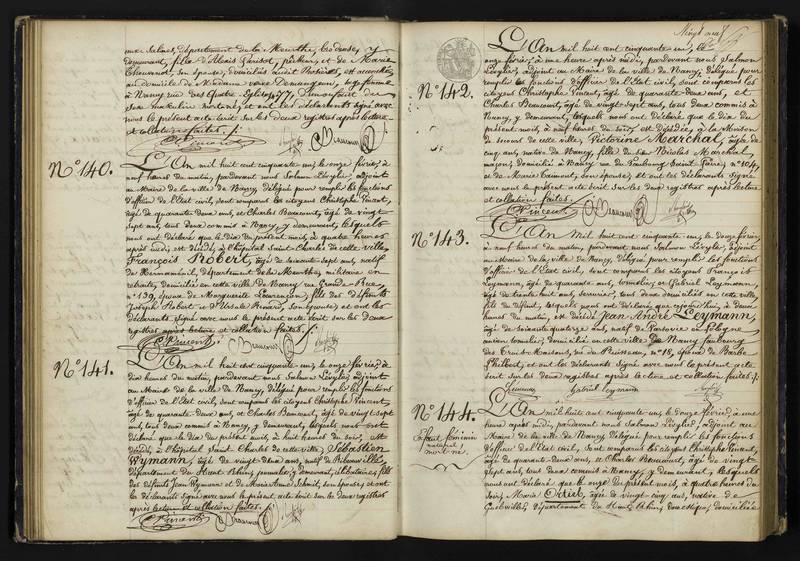 aux Salines, département de la Meurthe, brodeuse, y
demeurant, fille d'Alexis Parisot, pêcheur, et de Marie
Chouvenel, son épouse, domiciliés audit Rosières, est accouchée
au domicile de Madame veuve Demengeon, sage femme
à Nancy rue des Quatre Eglises, 77, d'un enfant du
sexe masculin mort-né; et ont les déclarants signé avec
nous le présent acte écrit sur les deux registres après lecture
et collation faites.
C Pincent Beaucourt
N° 140.
L'An mil huit cent cinquante un, le onze février, à
neuf heures du matin, pardevant nous Salmon Lévylier, adjoint
au Maire de la ville de Nancy, délégué pour remplir les fonctions
d'officier de l'Etat civil, sont comparus les citoyens Christophe Pincent,
âgé de quarante deux ans, et Charles Beaucourt, âgé de vingt
sept ans, tous deux commis à Nancy, y demeurant, lesquels
nous ont déclaré que le dix du présent mois, à quatre heures
après midi, est décédé, à l'hôpital Saint Charles de cette ville,
François Robert, âgé de soixante sept ans, natif
de Herménil, département de la Meurthe, militaire en
retraite, domicilié en cette ville de Nancy rue Grande Rue,
n° 139, époux de Marguerite Laurençon, fils des défunts
Joseph Robert et Ursule Renard, son épouse; et ont les
déclarants signé avec nous le présent acte écrit sur les deux
registres après lecture et collation faites.
C Pincent Beaucourt
N° 141.
L'An mil huit cent cinquante un, le onze février, à
dix heures du matin, pardevant nous Salmon Lévylier, adjoint
au Maire de la ville de Nancy, délégué pour remplir les fonctions
d'officier de l'Etat civil, sont comparus les citoyens Christophe Pincent,
âgé de quarante deux ans, et Charles Beaucourt, âgé de vingt sept
ans, tous deux commis à Nancy, y demeurant, lesquels nous ont
déclaré que le dix du présent mois, à huit heures du soir, est
décédé, à l'hôpital Saint Charles de cette ville, Sébastien
Wymann, âgé de vingt deux ans, natif de Ribeauvillé,
département du Haut Rhin, journalier, y demeurant, célibataire, fils
des défunts Jean Wymann et de Marie Anne Schmit, son épouse; et ont
les déclarants signé avec nous le présent acte écrit sur les deux registres
après lecture et collation faites.
C Pincent Beaucourt
Vingt neuf
N° 142.
L'An mil huit cent cinquante un, le
onze février, à une heure après midi, pardevant nous Salmon
Lévylier, adjoint au Maire de la ville de Nancy, délégué pour
remplir les fonctions d'officier de l'Etat civil, sont comparus les
citoyens Christophe Pincent, âgé de quarante deux ans, et
Charles Beaucourt, âgé de vingt sept ans, tous deux commis à
Nancy, y demeurant, lesquels nous ont déclaré que le dix du
présent mois, à neuf heures du soir, est décédée, à la Maison
de secours de cette ville, Victorine Marchal, âgée de
cinq ans, native de Nancy, fille de Nicolas Marchal,
maçon, domicilié à Nancy rue du Faubourg Saint Pierre, n° 104,
et de Marie son épouse; et ont les déclarants signé
avec nous le présent acte écrit sur les deux registres après lecture
et collation faites.
C Pincent Beaucourt
N° 143.
L'An mil huit cent cinquante un, le douze février,
à neuf heures du matin, pardevant nous Salmon Lévylier, adjoint
au Maire de la ville de Nancy, délégué pour remplir les fonctions
d'officier de l'Etat civil, sont comparus les citoyens François
Leymann, âgé de quarante ans, tonnelier, et Gabriel Leymann,
âgé de trente huit ans, serrurier, tous deux domiciliés en cette ville,
fils du défunt, lesquels nous ont déclaré que cejourd'hui, à deux
heures du matin, est décédé Jean André Leymann,
âgé de soixante quatorze ans, natif de Varsovie en Pologne,
ancien tonnelier, domicilié en cette ville de Nancy faubourg
des Trois Maisons, rue du Ruisseau, n° 18, époux de Barbe
Philbert, et ont les déclarants signé avec nous le présent acte
écrit sur les deux registres après lecture et collation faites.
Leymann Gabriel Leymann
N° 144.
Enfant féminin
naturel
mort-né.
L'An mil huit cent cinquante un, le douze février, à une
heure après midi, pardevant nous Salmon Lévylier, adjoint au
Maire de la ville de Nancy, délégué pour remplir les fonctions
d'officier de l'Etat civil, sont comparus les citoyens Christophe Pincent,
âgé de quarante deux ans, et Charles Beaucourt, âgé de vingt
sept ans, tous deux commis à Nancy, y demeurant, lesquels
nous ont déclaré que le onze du présent mois, à quatre heures du
soir, Marie Odile, âgée de vingt-cinq ans, native de
Guebwiller, département du Haut-Rhin, domestique, domiciliée